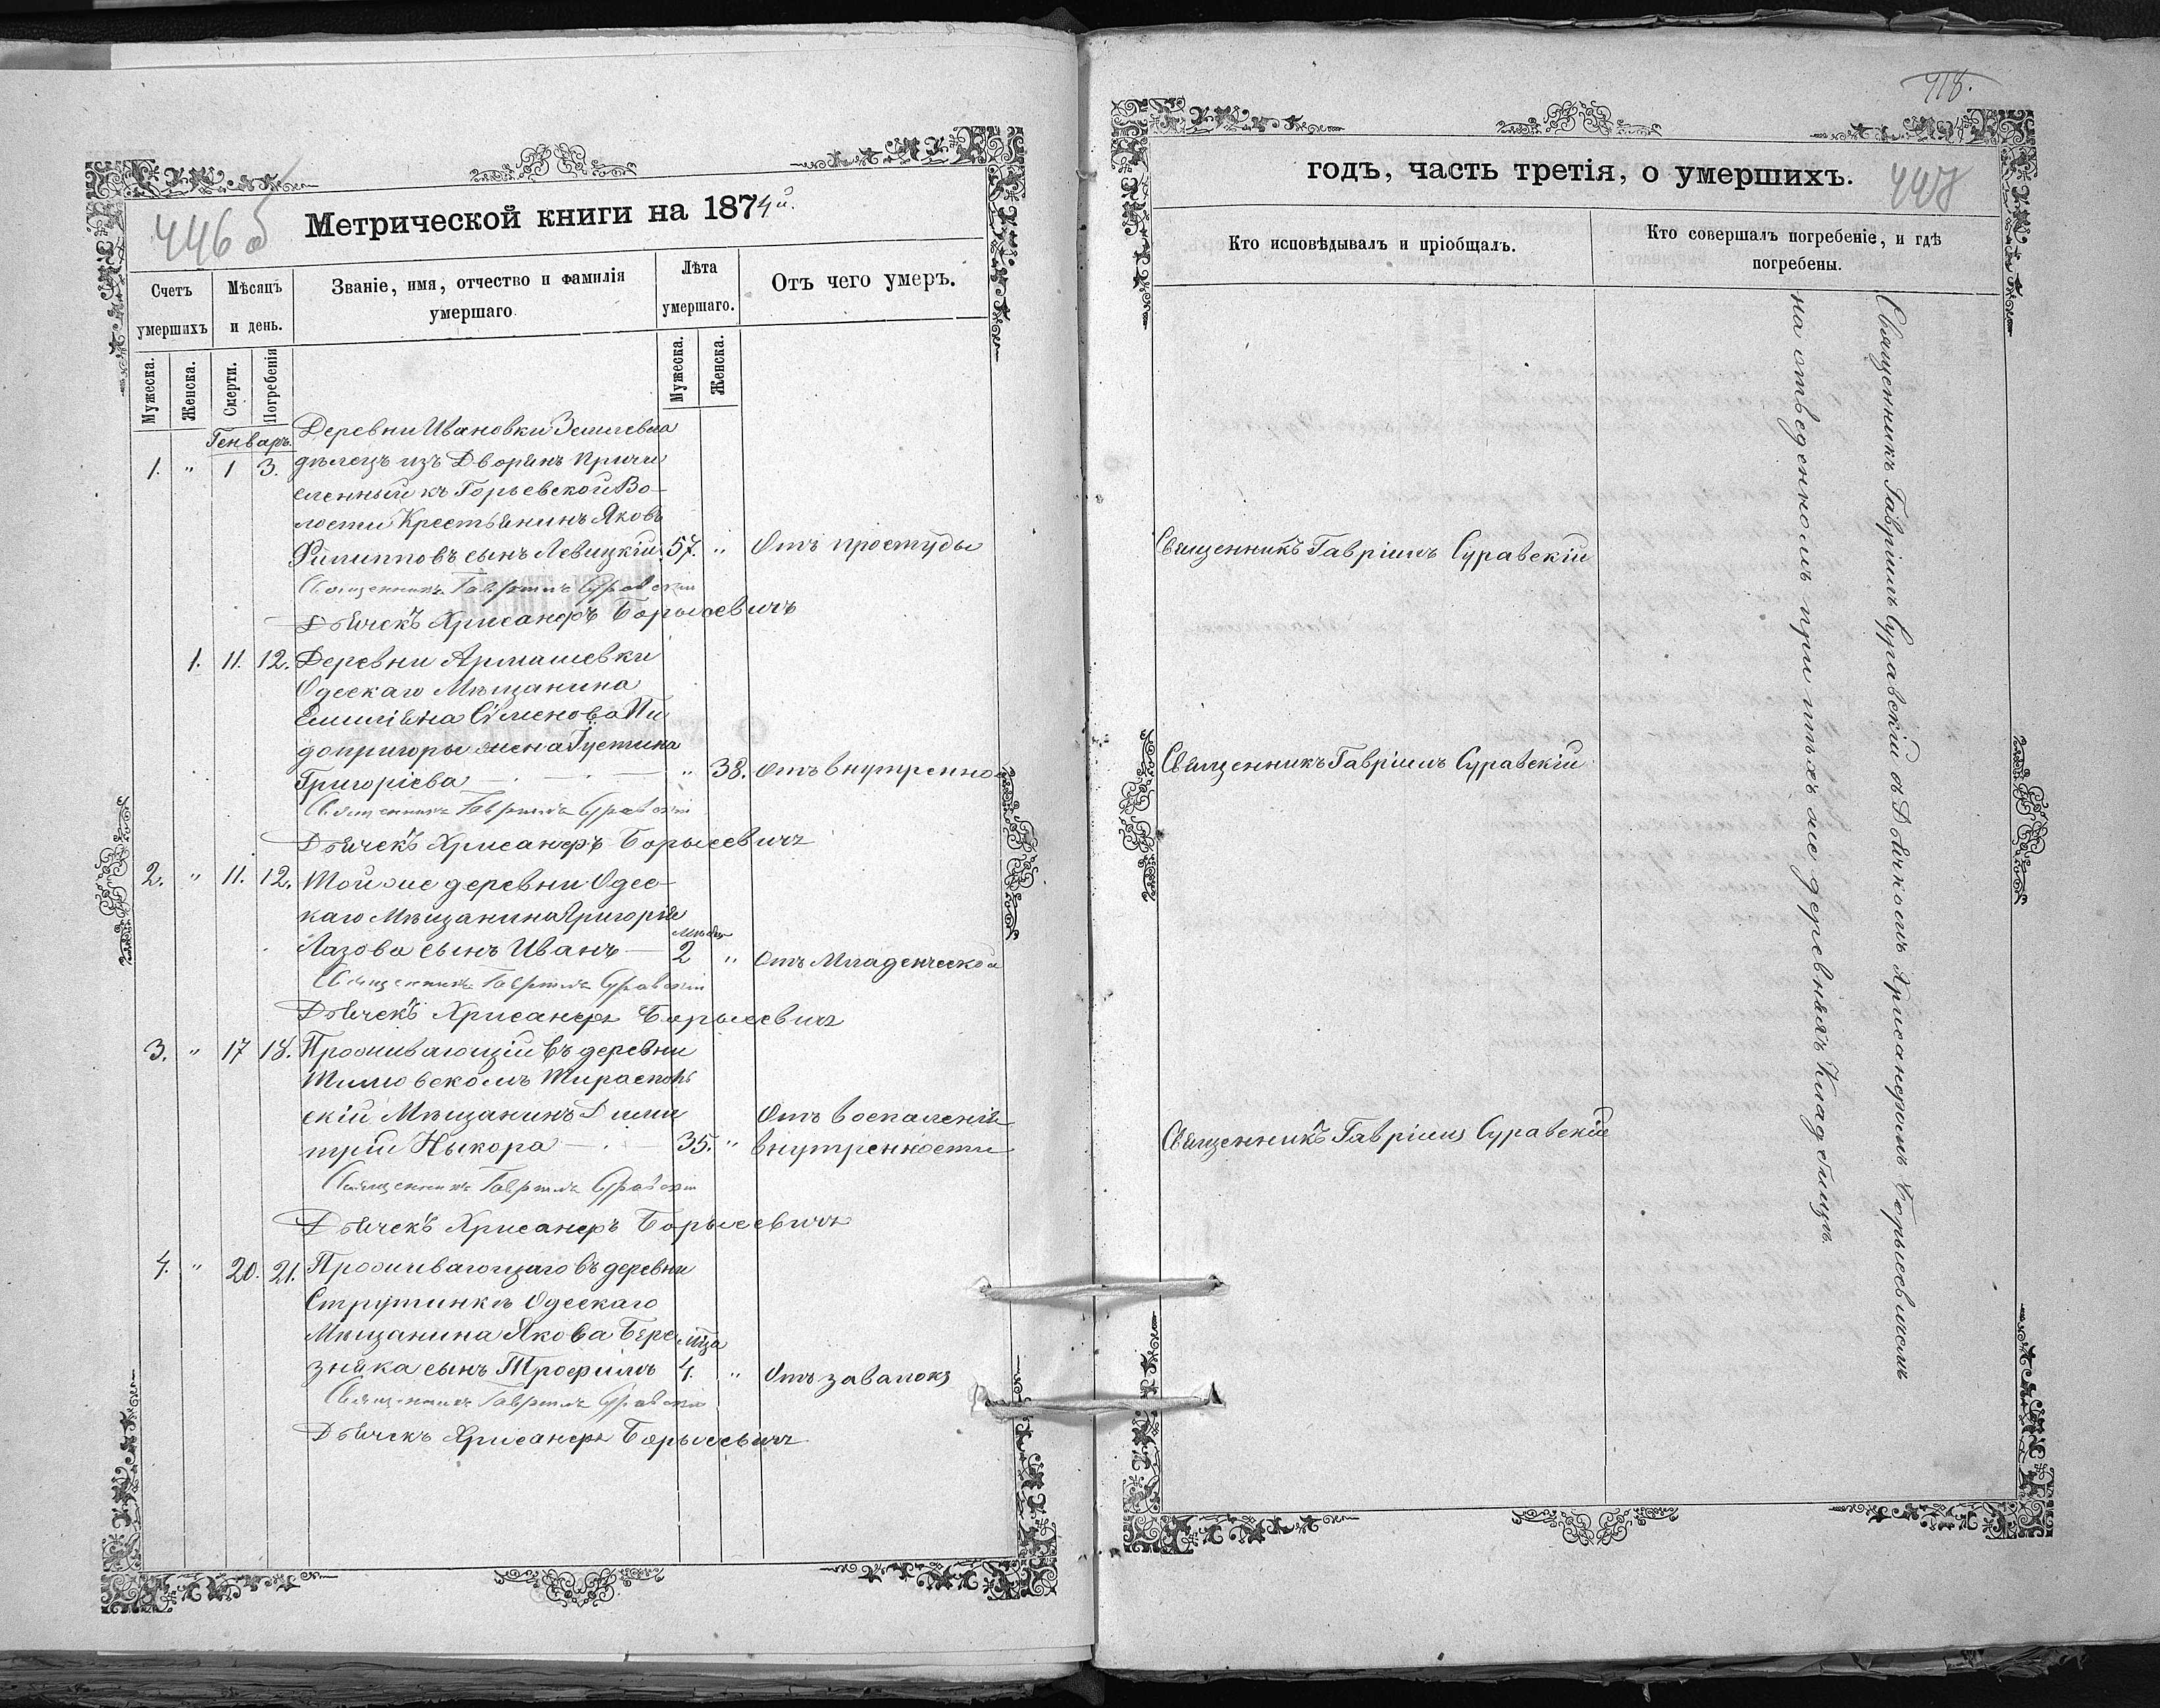 446 об
Метрической книги на 1874й.
Счетъ умершихъ
Мѣсяцъ и день.
Званіе, имя, отчество и фамилія умершаго.
Лѣта умершаго.
Отъ чего умеръ.
Мужеска.
Женска.
Смерти.
Погребенія
Мужеска.
Женска.
Генварь.
Деревни Ивановки Землевла
1. " 1 3. дѣлецъ изъ Дворянъ причи
сленный къ Горьевской Во-
лости Крестьянинъ Яковъ
Филипповъ сынъ Левицкій 57. " Отъ простуды
Священникъ Гавріилъ Суравскій
Дьячекъ Хрисанфъ Борысевичъ
1. 11. 12. Деревни Армашевки
Одескаго Мѣщанина
Емиліяна Сѵменова Пи
допригоры жена Густина
Григоріева " 38. Отъ внутренно
Священникъ Гавріилъ Суравскій
Дьячекъ Хрисанфъ Борысевичъ
2. " 11. 12. Той же деревни Одес-
каго Мѣщанина Григорія
Лазова сынъ Иванъ 2 " Отъ Младенческой
Священникъ Гавріилъ Суравскій
Дьячекъ Хрисанфъ Борысевичъ
3. " 17 18. Проживающій въ деревни
Тираспопь
скій Мѣщанинъ Дими
трій Ныкора 35. " Отъ воспаленія
внутренности
Священникъ Гавріилъ Суравскій
Дьячекъ Хрисанфъ Борысевичъ
4. " 20. 21. Проживающаго въ деревни
Струтинкѣ Одескаго
Мѣщанина Якова Бере
зняка сынъ Трофимъ 4. " Отъ завалокъ
Священникъ Гавріилъ Суравскій
Дьячекъ Хрисанфъ Борысевичъ
418.
годъ, часть третія, о умершихъ.
447
Кто исповѣдывалъ и пріобщалъ.
Кто совершалъ погребеніе, и гдѣ погребены.
Священникъ Гавріилъ Суравскій
Священникъ Гавріилъ Суравскій
Священникъ Гавріилъ Суравскій
Священникъ Гавріилъ Суравскій съ Дьячкомъ Хрисанфомъ Борысевичомъ
на отведенномъ при тѣхъ же деревняхъ Кладбищѣ.